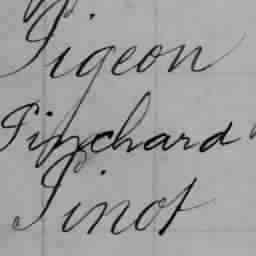 Pigeon
Pinchard
Pinot